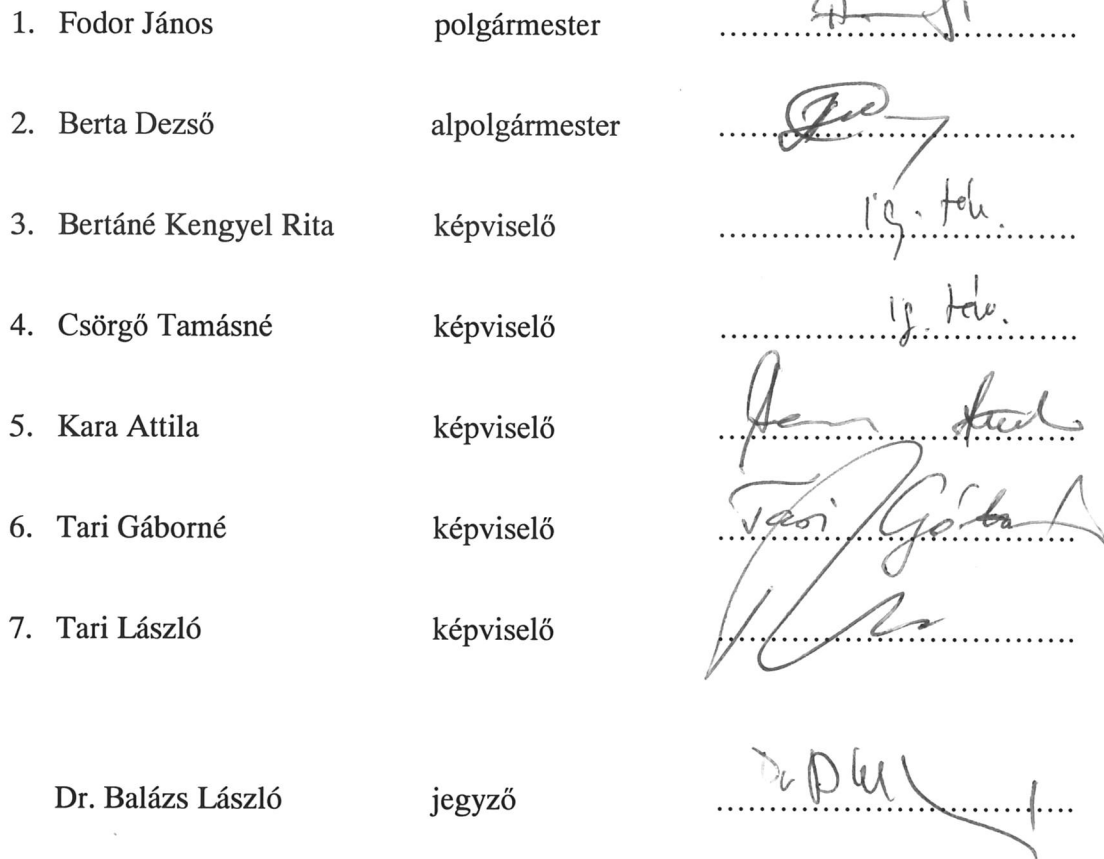 1. Fodor János polgármester
2. Berta Dezső alpolgármester
3. Bertáné Kengyel Rita képviselő ig. táv.
4. Csörgő Tamásné képviselő ig. táv.
5. Kara Attila képviselő
6. Tari Gáborné képviselő Tari Gáborné
7. Tari László képviselő
Dr. Balázs László jegyző Dr